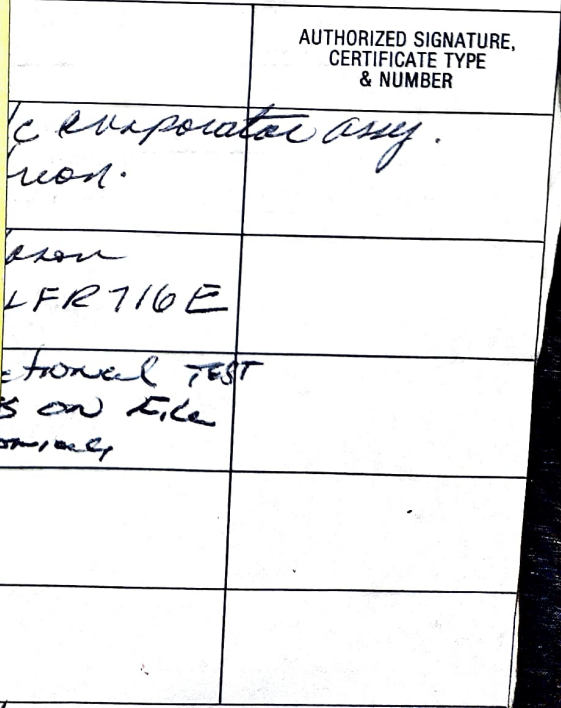 AUTHORIZED SIGNATURE,
CERTIFICATE TYPE
& NUMBER
/c evaporator assy.
reon.
ason
LFR716E
ctional TEST
S ON File